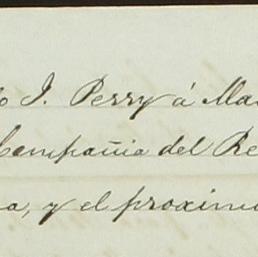 J. Perry á
Compañia del
y el proximo